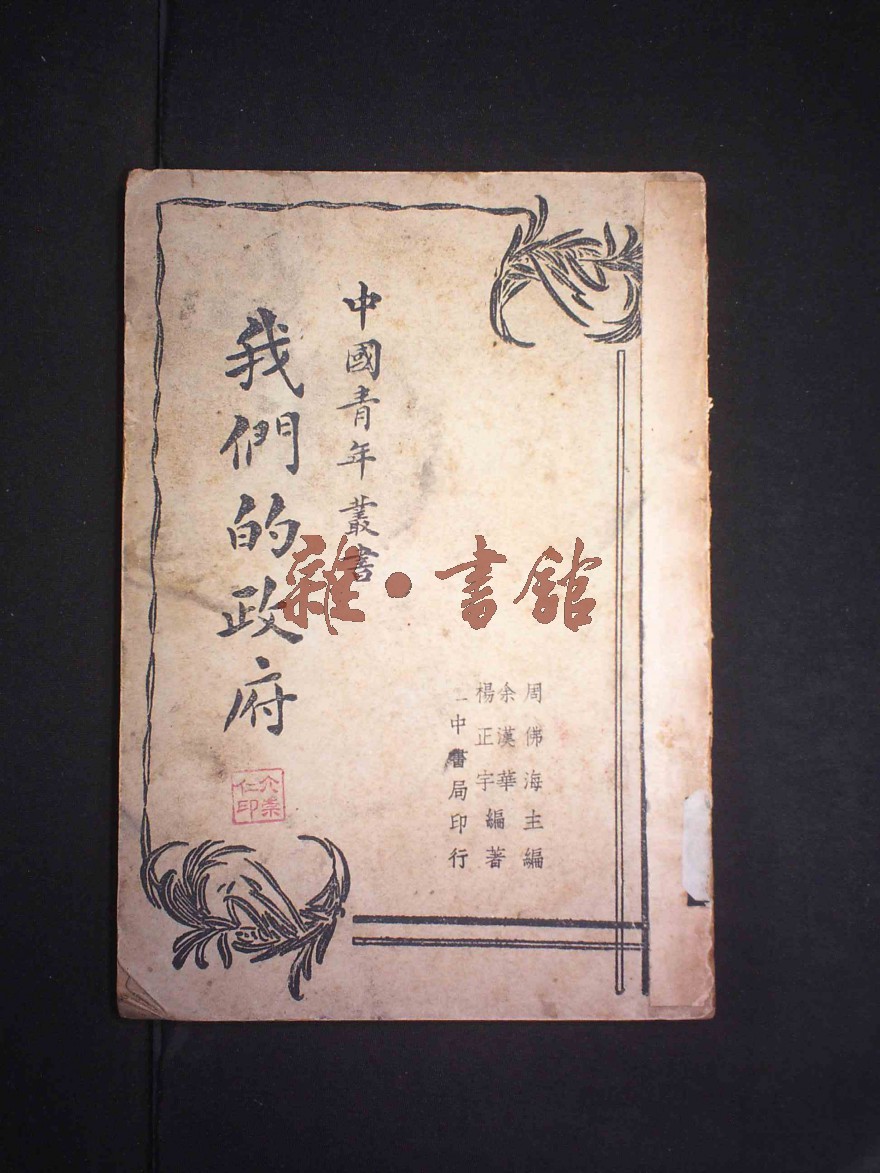 中國青年叢書
我們的政府
周佛海主編
余漢華
楊正宇
編著
一中書局印行
雜·書館